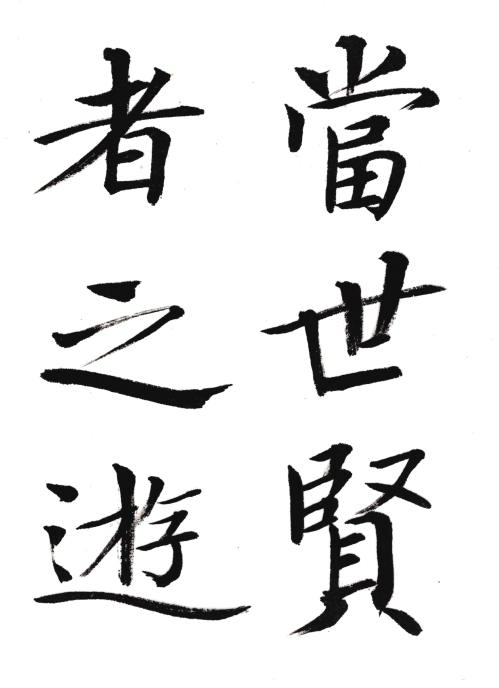 當世賢
者之遊